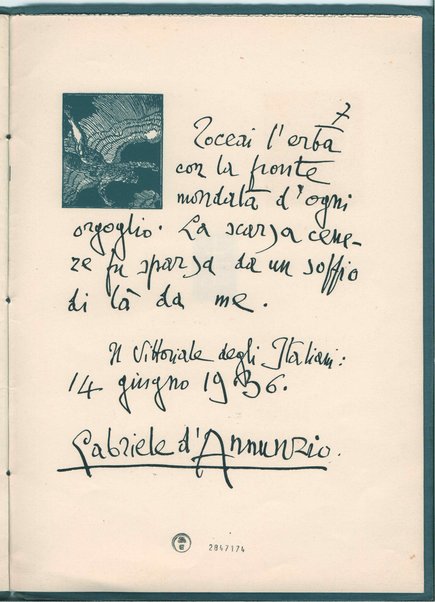 7
Toccai l'erba
con la fronte
mondata d'ogni
orgoglio. La scarsa cene-
re fu sparsa da un soffio
di là da me.
Il Vittoriale degli Italiani:
14 giugno 1936.
Gabriele d'Annunzio.
2847174